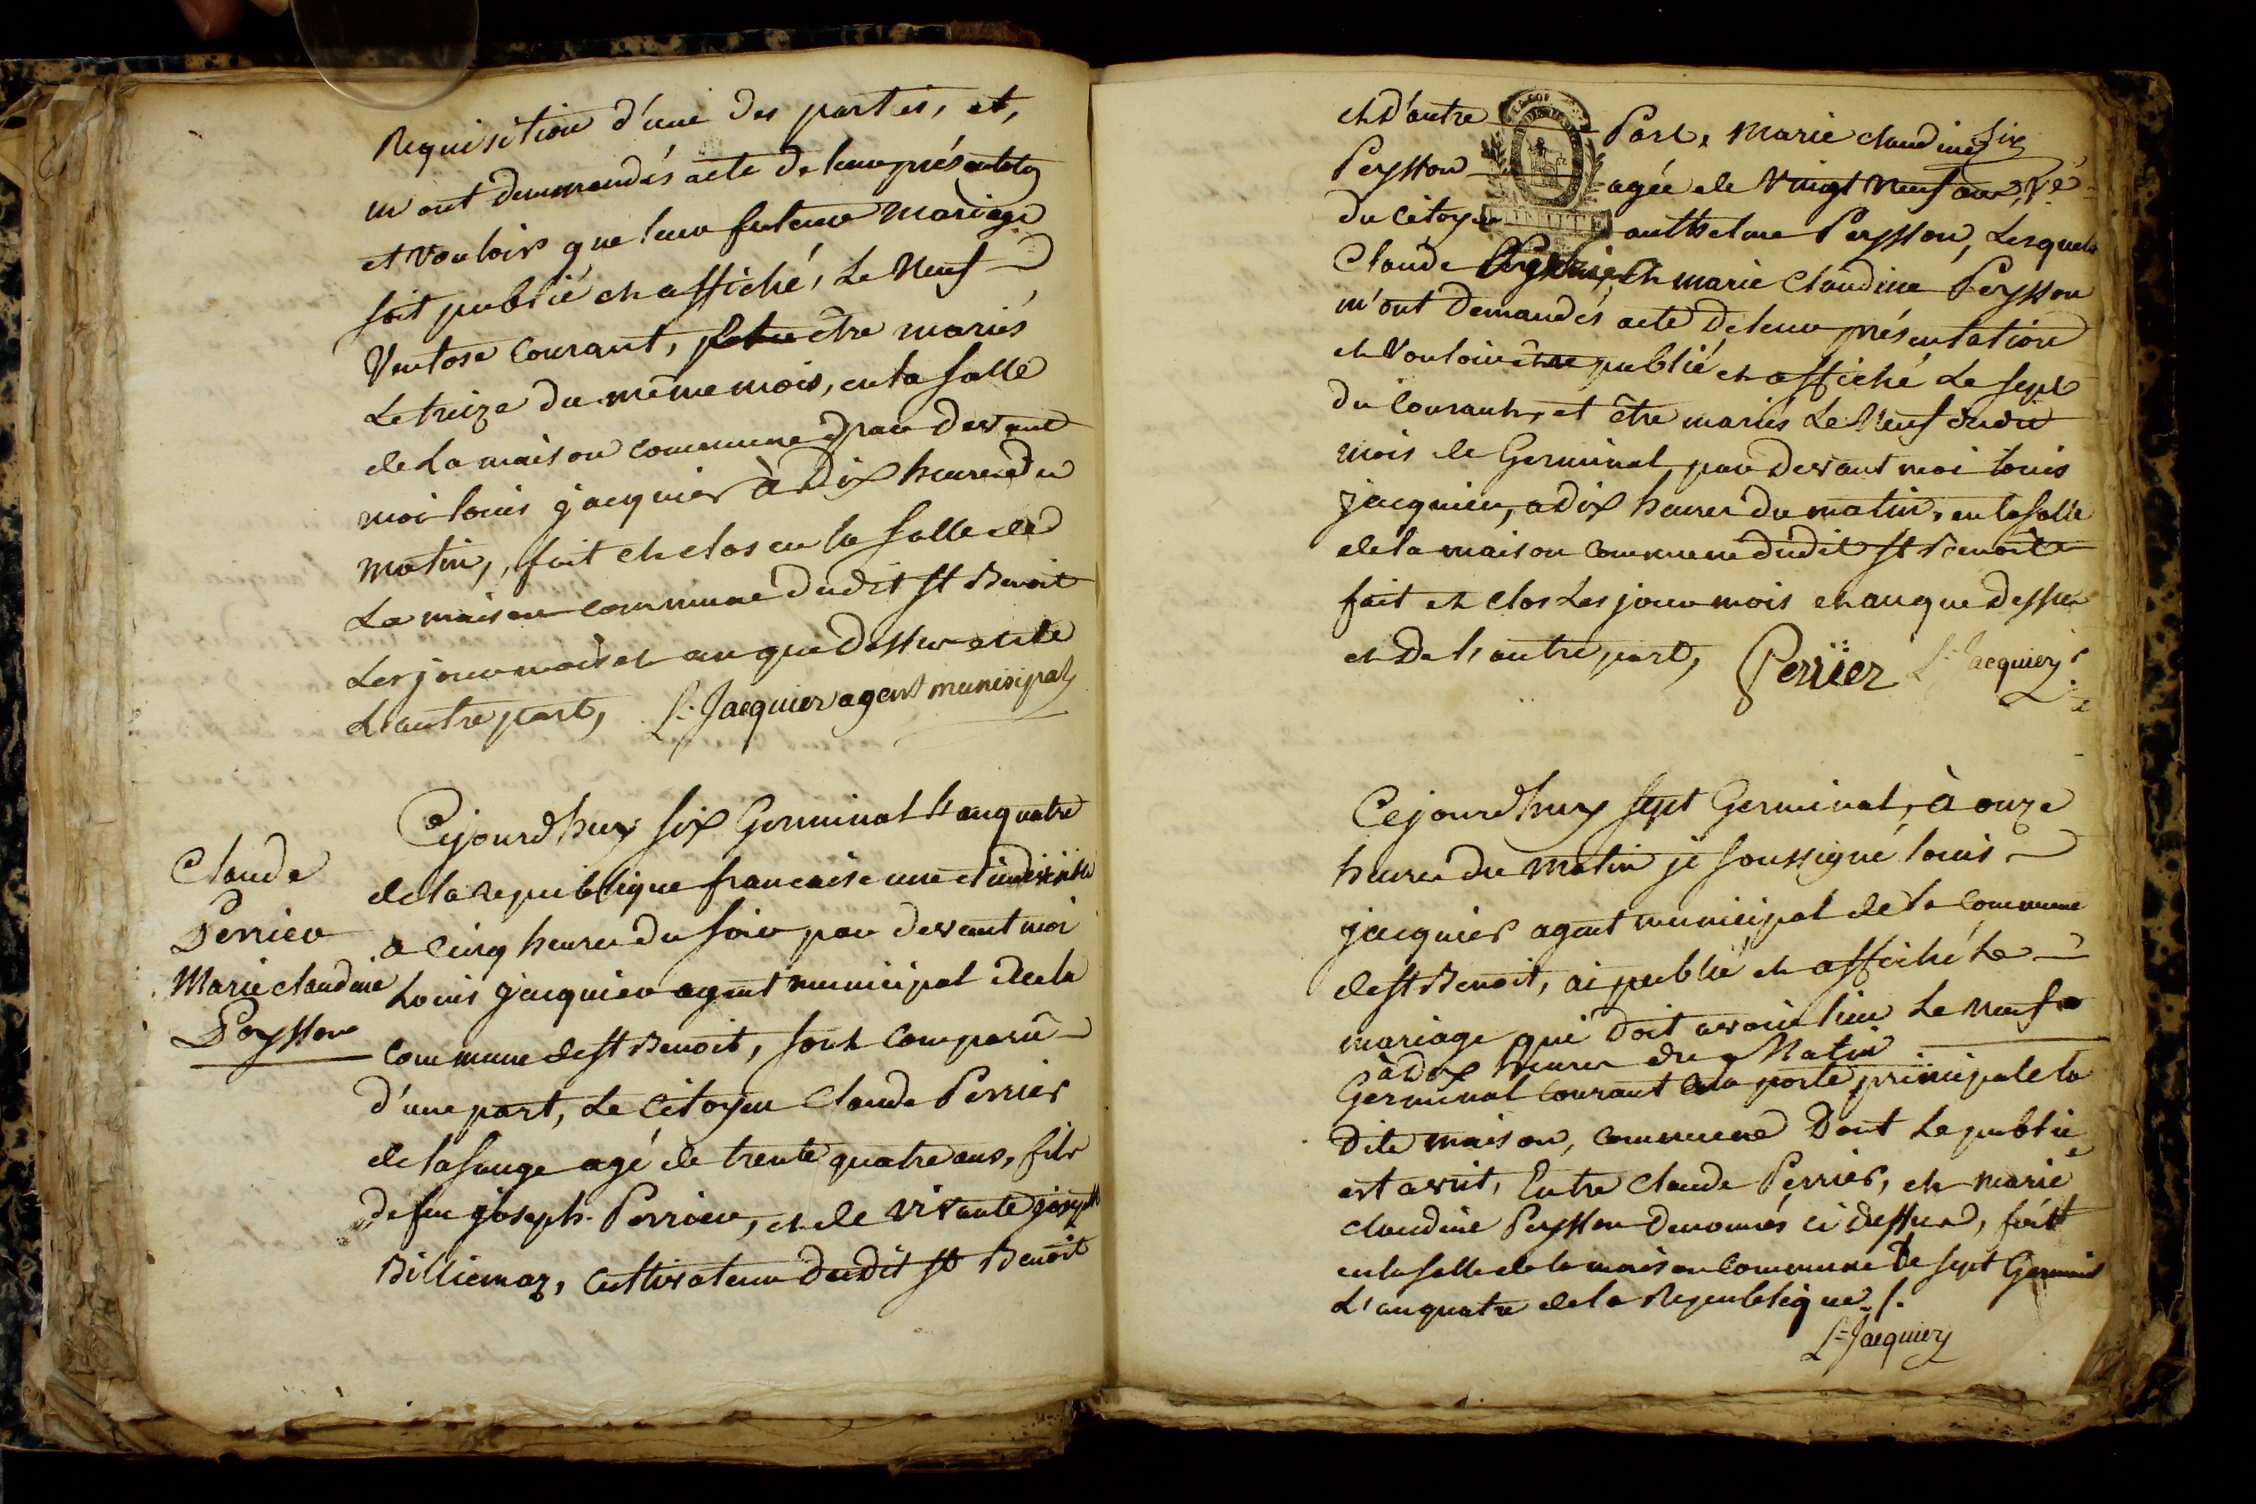 Requisition d'une des parties, et,
m'ont demmandés acte de leur présentation
et vouloir que leur future mariage
soit publié et affiché, Le neuf
Ventose courant, pour être mariés
Le treize du même mois, en la salle
de La maison commune par devant
moi louis jacquier à Dix heures du
matin, fait et clos en la salle de
La maison commune dudit st Benoit
Les jour mois et an que dessus et de
L'autre part, L. Jacquier agent municipal
Claude
Perrier
Marie claudine
Peysson
Cejourd'huy six Germinal l'an quatre
de la republique francaise une et indivisible
a cinq heures du soir par devant moi
Louis jacquier agent municipal de la
commune de st Benoit, sont comparu
d'une part, Le citoyen Claude Perrier
de lasauge agé de trente quatre ans, fils
de feu joseph Perrier, et de vivante joseph
Billiemaz, cultivateur dudit st Benoit
et d'autre Part, Marie claudine
Peysson agée de vingt neuf ans,
du citoyen anthelme Peysson, Lesquels
Claude et marie Claudine Peysson
m'ont demandés acte de leur présentation
et vouloir être publié et affiché Le sept
du courant, et être mariés Le neuf dudit
mois de Germinal par devant moi louis
jacquier, a dix heures du matin, en la salle
de la maison commune dudit st Benoit
fait et clos Les jour mois et an que dessus
et De l'autre part, Perüer L. Jacquier
Cejourd'huy sept Germinal, à onze
heures du matin je soussigné louis
jacquier agent municipal de la commune
de st Benoit, ai publié et affiché Le
mariage qui doit avoir lieu Le neuf
à dix heures du Matin
Germinal courant a la porte principale la
dite maison, commune Dont Le publié
est avrit, Entre claude Perrier, et marie
claudine Peysson denomés ci dessus, fait
en la salle de la maison commune le sept Germinal
L'an quatre de la Republique.
L. Jacquier